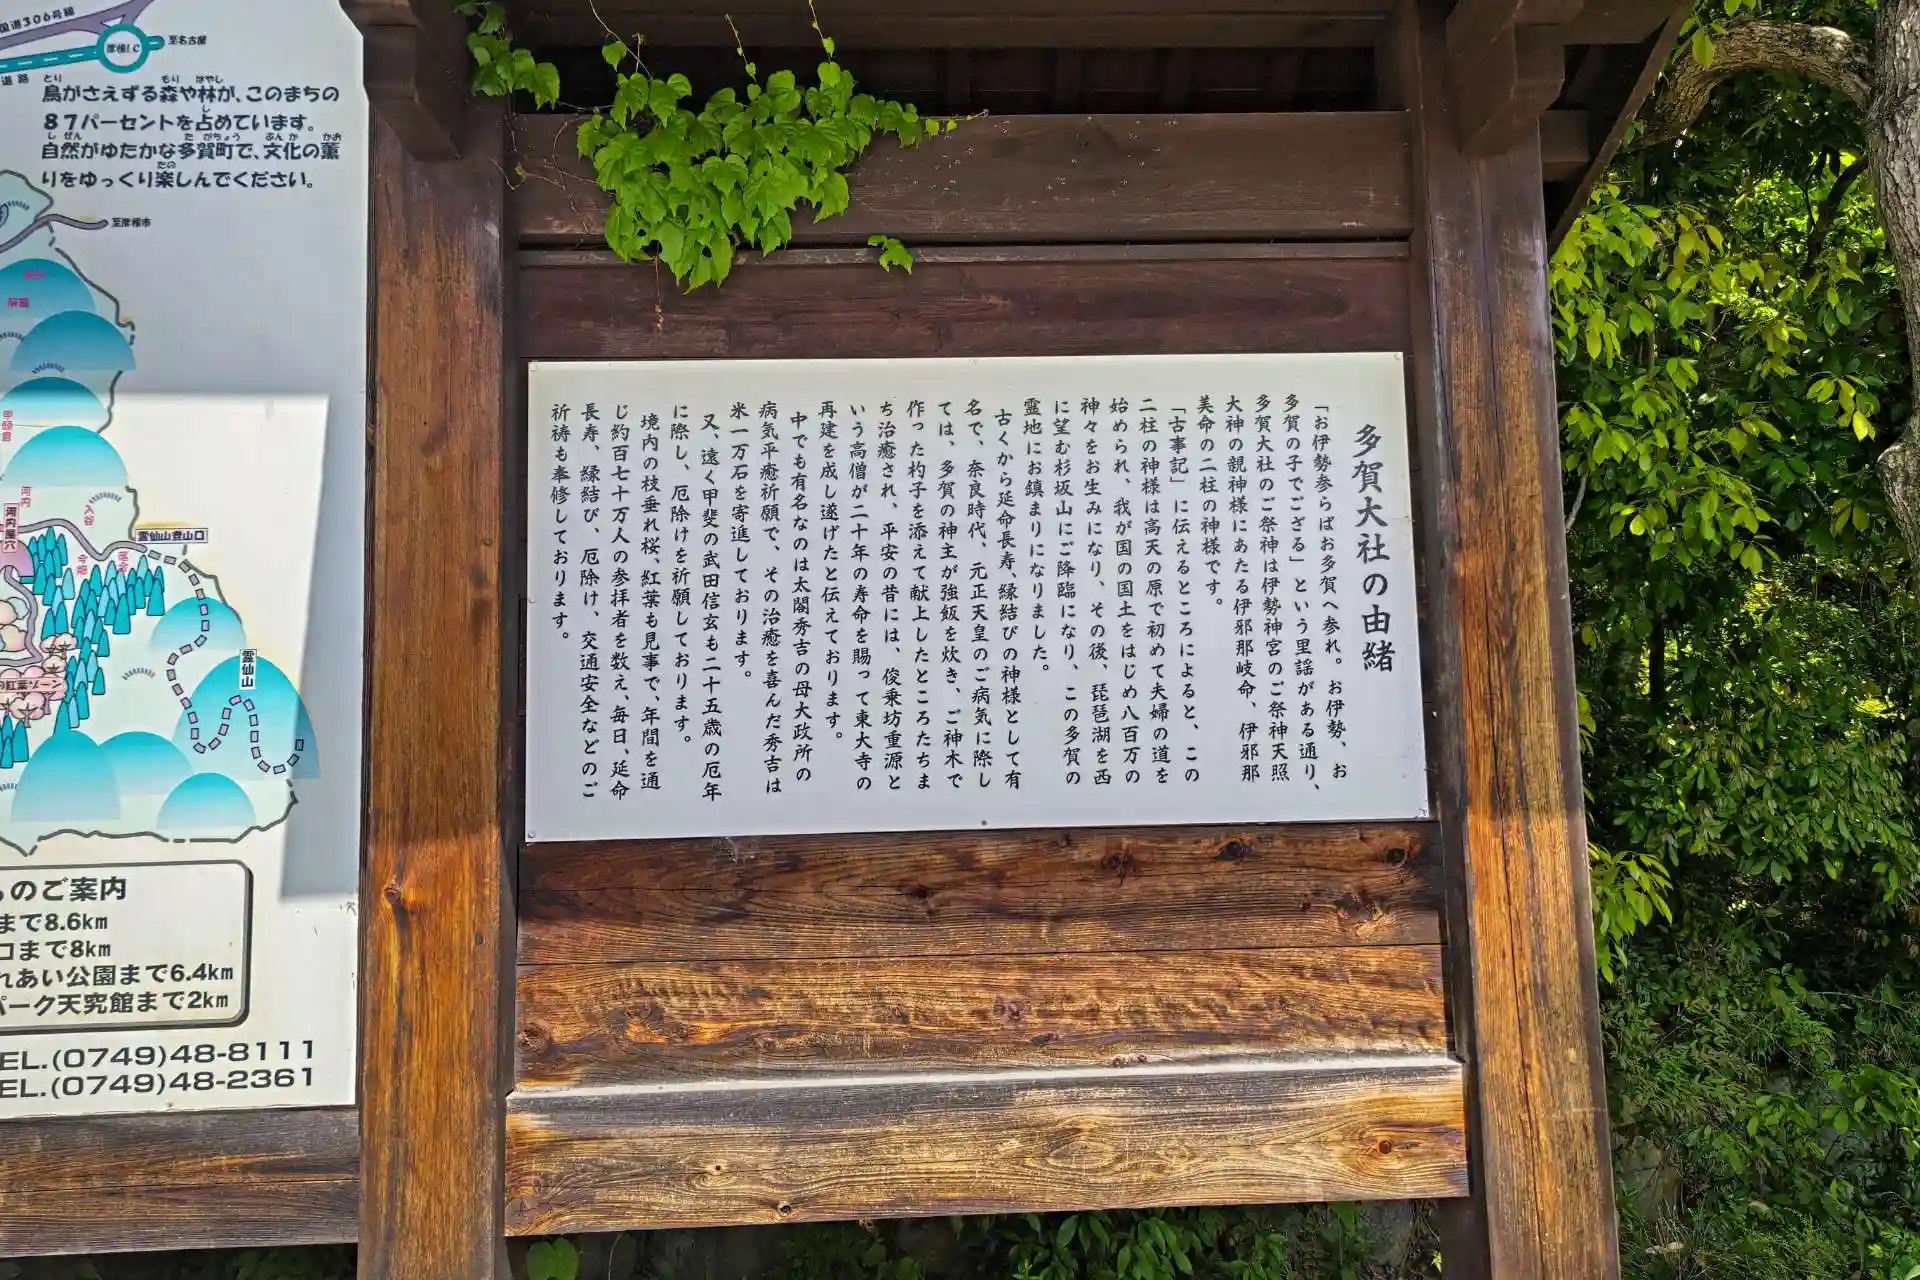 国道306号線
彦根I.C
至名古屋
道路
鳥がさえずる森や林が、このまちの
87パーセントを占めています。
自然がゆたかな多賀町で、文化の薫
りをゆっくり楽しんでください。
至彦根市
河内
河内風穴
入谷
落合
今畑
霊仙山登山口
霊仙山
紅葉ゾーン
のご案内
まで8.6km
口まで8km
れあい公園まで6.4km
パーク天究館まで2km
EL.(0749)48-8111
EL.(0749)48-2361
多賀大社の由緒
「お伊勢参らばお多賀へ参れ。お伊勢、お
多賀の子でござる」という里謡がある通り、
多賀大社のご祭神は伊勢神宮のご祭神天照
大神の親神様にあたる伊邪那岐命、伊邪那
美命の二柱の神様です。
「古事記」に伝えるところによると、この
二柱の神様は高天の原で初めて夫婦の道を
始められ、我が国の国土をはじめ八百万の
神々をお生みになり、その後、琵琶湖を西
に望む杉坂山にご降臨になり、この多賀の
霊地にお鎮まりになりました。
古くから延命長寿、縁結びの神様として有
名で、奈良時代、元正天皇のご病気に際し
ては、多賀の神主が強飯を炊き、ご神木で
作った杓子を添えて献上したところたちま
ち治癒され、平安の昔には、俊乗坊重源と
いう高僧が二十年の寿命を賜って東大寺の
再建を成し遂げたと伝えております。
中でも有名なのは太閤秀吉の母大政所の
病気平癒祈願で、その治癒を喜んだ秀吉は
米一万石を寄進しております。
又、遠く甲斐の武田信玄も二十五歳の厄年
に際し、厄除けを祈願しております。
境内の枝垂れ桜、紅葉も見事で、年間を通
じ約百七十万人の参拝者を数え、毎日、延命
長寿、縁結び、厄除け、交通安全などのご
祈祷も奉修しております。